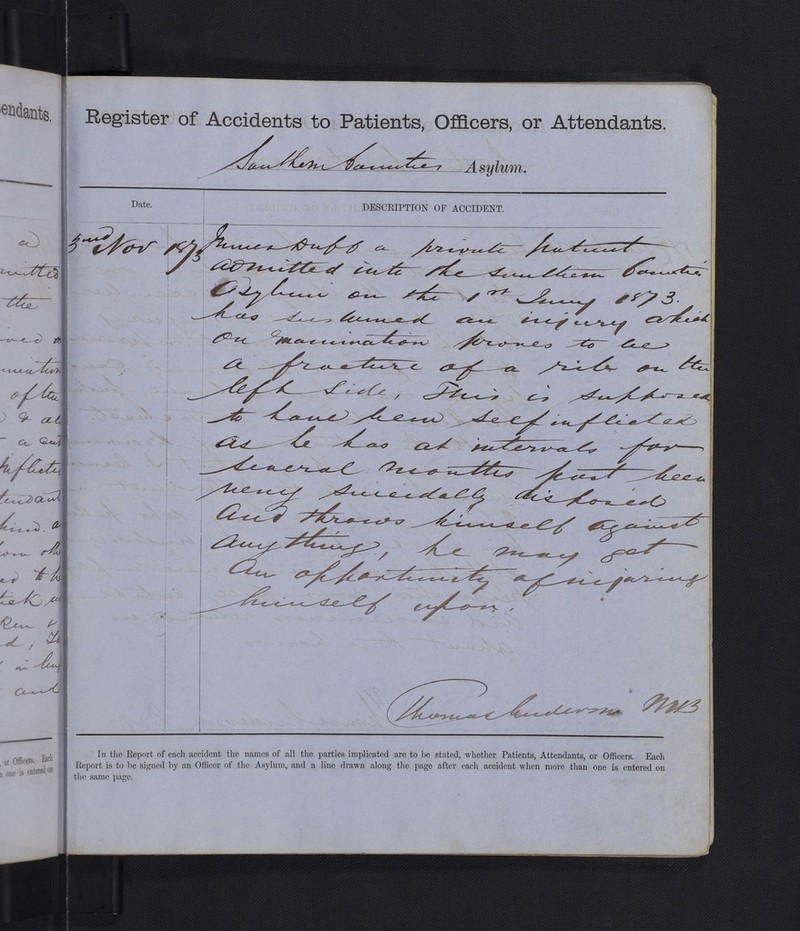 endants.
Register of Accidents to Patients, Officers, or Attendants.
Southern Counties Asylum.
Date.
DESCRIPTION OF ACCIDENT.
3rd Nov 1873 James Duff a private patient
admitted into the Southern Counties
Asylum on the 1st 1873.
has sustained an injury which
on examination proves to be
a fracture of a rib on the
left side, This is supposed
to have been self inflicted
as he has at intervals for
several months past been
very suicidally disposed
and throws himself against
any thing, he may get
an opportunity of injuring
himself upon.
Thomas Anderson MB
In the Report of each accident the names of all the parties implicated are to be stated, whether Patients, Attendants, or Officers. Each
Report is to be signed by an Officer of the Asylum, and a line drawn along the page after each accident when more than one is entered on
the same page.
a
the
of the
a cut
and
or Officers. Each
one is entered on